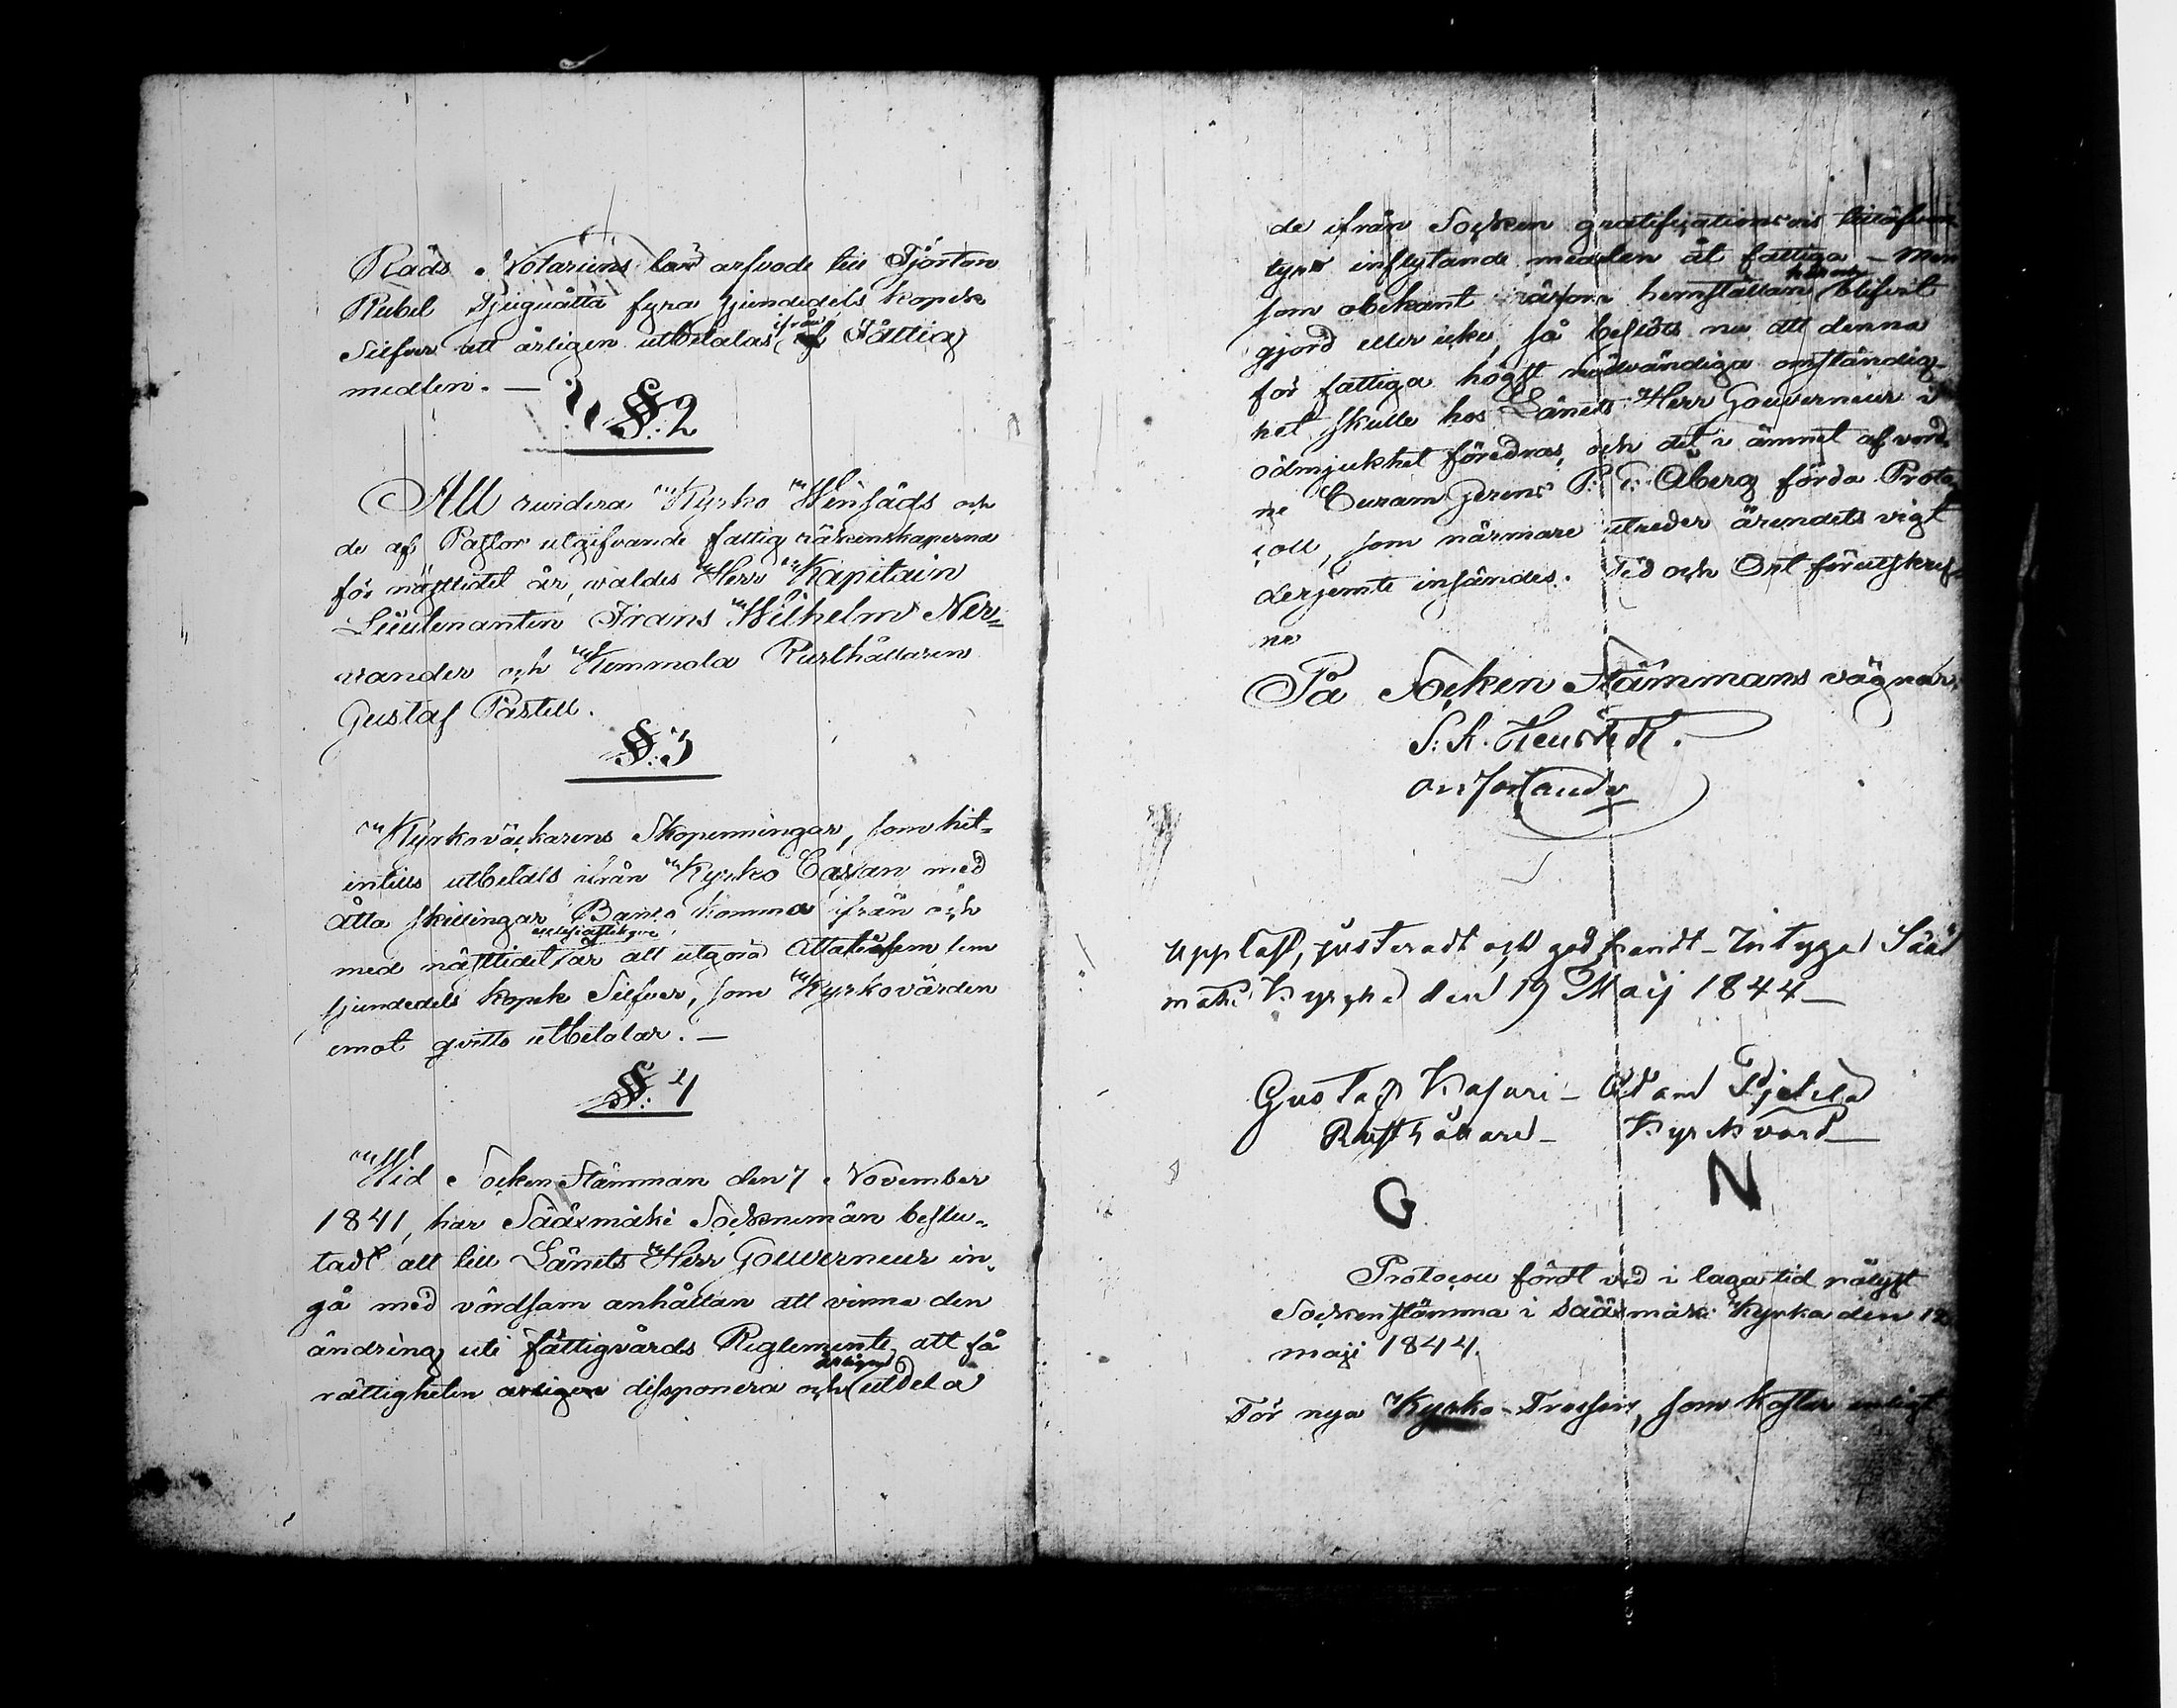 Råds Notariens arfvode till Fjorton
Rubel Tjuguåtta fyra sjundedels kopek
Silfver att årligen utbetalas ifrån Fattig
medlen. —
§:2
Att revidera Kyrko Winsäds och
de af Pastor utgifvande fattig räkenskaperna
för nästledet år, valdes Herr Kapitain
Lieutenanten Frans Wilhelm Ner-
vander och Hemmola Rusthållaren
Gustaf Pastell.
§:3
Kyrkoväckarens Skopenningar, som hit-
intills utbetals ifrån Kyrko Cassan med
Åtta skillingar Banco komma ifrån och
med nästledet ecclesiastique år att utgöra Åttatiofem fem
sjundedels kopek Silfver, som Kyrkovärden
emot qvitto utbetalar. —
§:4
Wid Socken Stämman den 7 November
1841, har Sääxmäki Socknemän beslu-
tadt att till Länets Herr Gouverneur in-
gå med vördsam anhållan att vinna den
ändring uti fattigvårds Reglemente att få
rättigheten årligen disponera och årligen utdela
de ifrån Socken gratifications vis
inflytande medlen åt fattiga — Men
som obekant är om hemställan härom blifvit
gjord eller icke, så beslöts nu att denna
för fattiga högst nödvändiga omständig-
het skulle hos Länets Herr Gouverneur i
ödmjukhet föredras, och det i ämnet af vord-
ne Curam Gerens P: E: Åberg förda Proto-
coll, som närmare utreder ärendets vigt
derjemte insändes. Tid och Ort förutskrif-
ne
På Socken Stämmans vägnar
Ordförande
Uppläst, justeradt och godkändt — Intygad Sääx
mäki Kyrcka den 19 Maij 1844 —
Gustaf Kasuri — Adam Pjetilä
Rusthållare — Kyrckvärd —
G N
Protocoll fördt vid i laga tid pålyst
Sockenstämma i Sääxmäki Kyrka den 19
maji 1844.
För nya Kyrko-Tresken, som kostar enligt